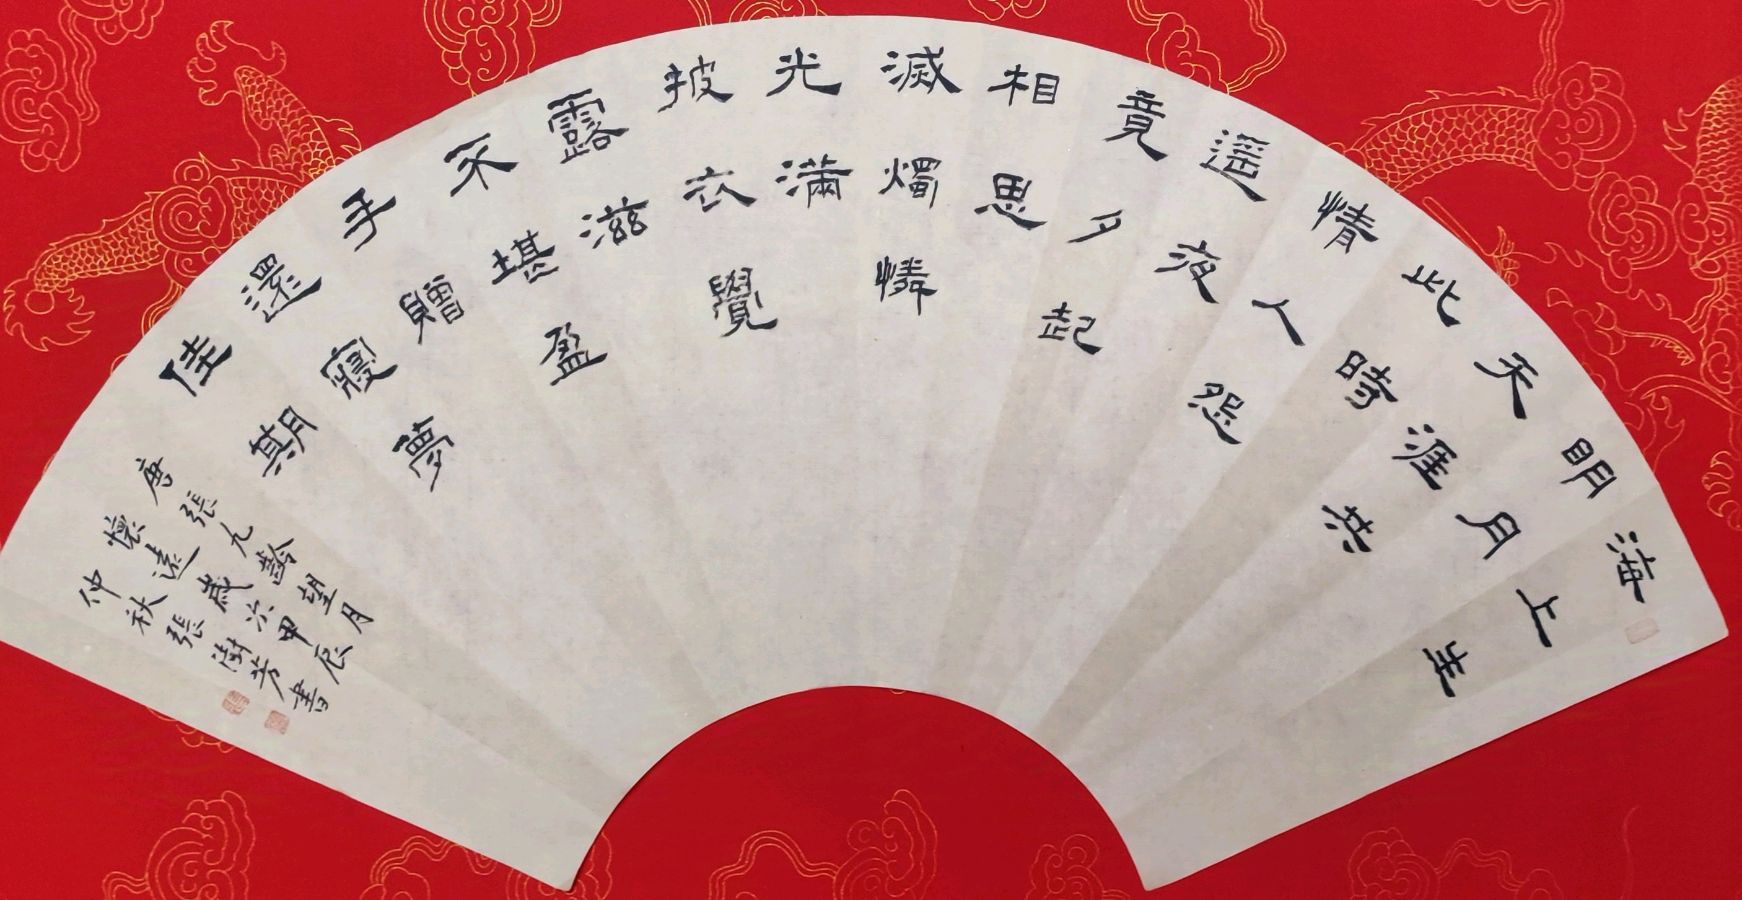 海上生
明月
天涯共
此時
情人怨
遙夜
竟夕起
相思
滅燭憐
光滿
披衣覺
露滋
不堪盈
手贈
還寢夢
佳期
唐張九齡望月
懷遠歲次甲辰
仲秋張澍芳書